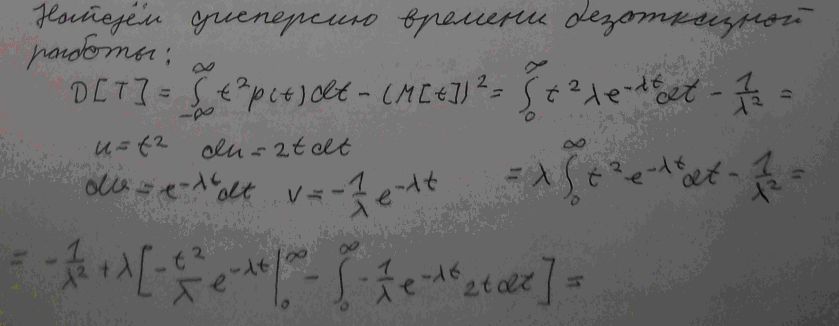 Найдём дисперсию времени безотказной
работы:
D[T] = ∫_{-∞}^{∞} t²p(t)dt - (M[t])² = ∫_0^∞ t²λe^{-λt}dt - 1/λ² =
u = t² du = 2tdt
dv = e^{-λt}dt v = -1/λ e^{-λt} = λ∫_0^∞ t²e^{-λt}dt - 1/λ² =
= -1/λ² + λ[-t²/λ e^{-λt}|_0^∞ - ∫_0^∞ -1/λ e^{-λt} 2tdt] =